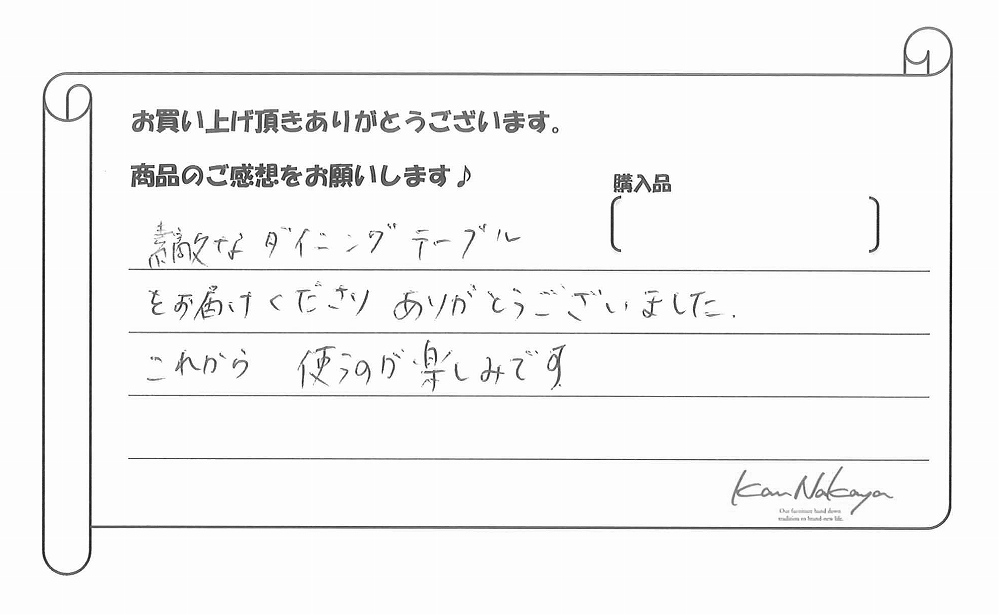 お買い上げ頂きありがとうございます。
商品のご感想をお願いします♪
購入品
素敵な ダイニングテーブル
をお届けくださり ありがとうございました.
これから 使うのが楽しみです
Kan Nakaya
Our furniture hand down
tradition to brand-new life.